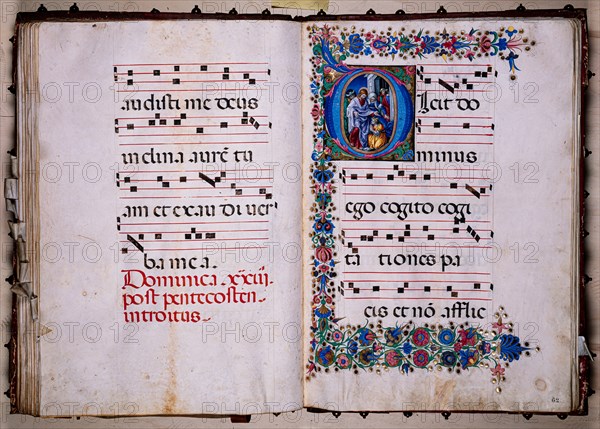 audisti me deus
inclina aurē tu
am et exau di ver
ba mea.
Dominica xxiii
post pentecosten
introitus
Dicit do
minus
ego cogito cogi
ta tiones pa
cis et nō afflic
62